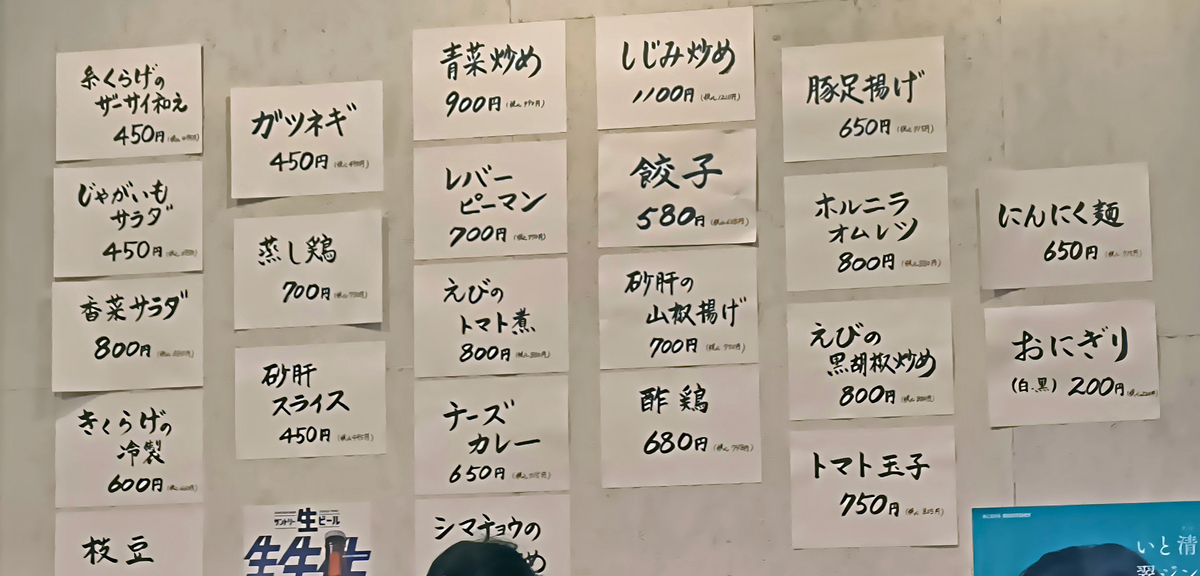 糸くらげの
ザーサイ和え
450円
じゃがいも
サラダ
450円
香菜サラダ
800円
きくらげの
冷製
600円
枝豆
ガツネギ
450円
蒸し鶏
700円
砂肝
スライス
450円
サントリー生ビール
生生生
青菜炒め
900円
レバー
ピーマン
700円
えびの
トマト煮
800円
チーズ
カレー
650円
シマチョウの
め
しじみ炒め
1100円
餃子
580円
砂肝の
山椒揚げ
700円
酢鶏
680円
豚足揚げ
650円
ホルニラ
オムレツ
800円
えびの
黒胡椒炒め
800円
トマト玉子
750円
にんにく麺
650円
おにぎり
(白.黒) 200円
清
いと